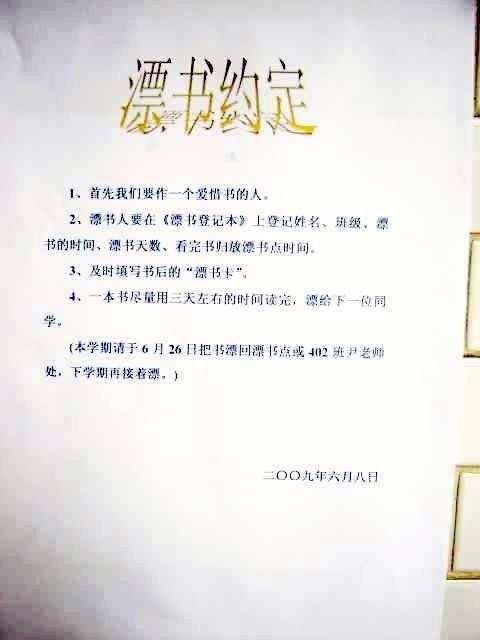 漂书约定
1、首先我们要作一个爱惜书的人。
2、漂书人要在《漂书登记本》上登记姓名、班级、漂
书的时间、漂书天数、看完书归放漂书点时间。
3、及时填写书后的“漂书卡”。
4、一本书尽量用三天左右的时间读完，漂给下一位同
学。
(本学期请于 6 月 26 日把书漂回漂书点或 402 班尹老师
处，下学期再接着漂。)
二〇〇九年六月八日